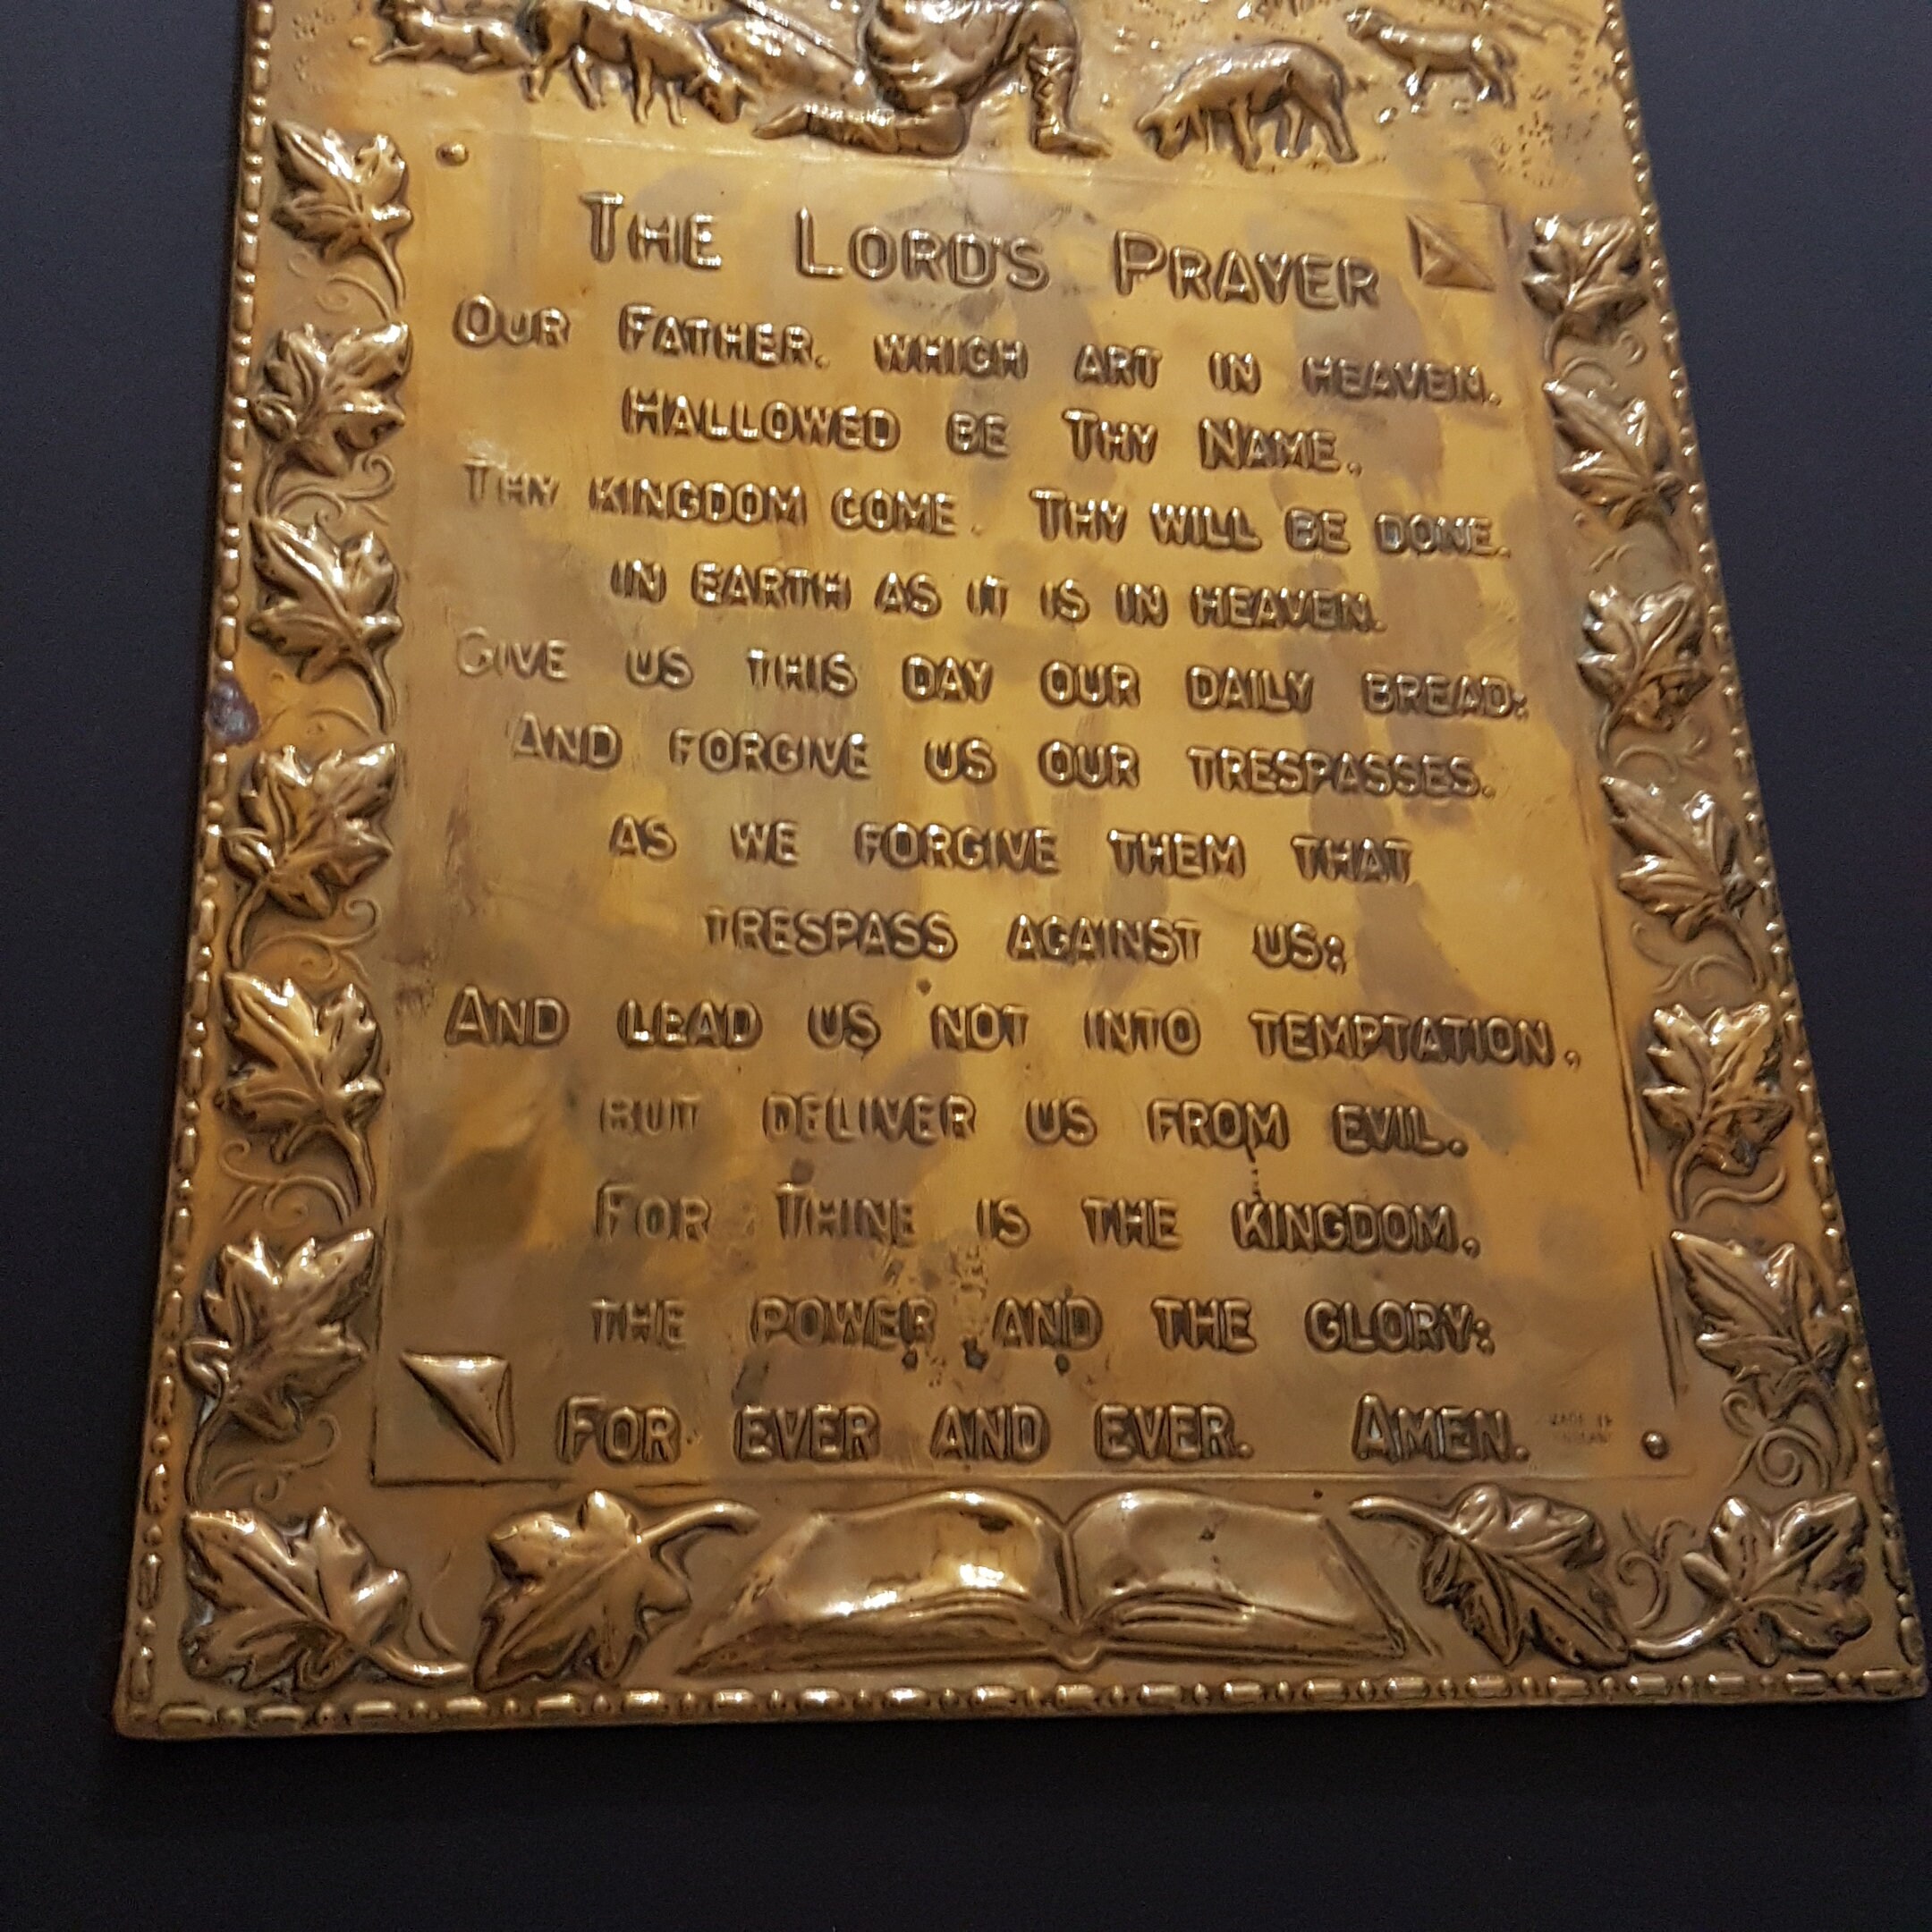 THE LORD'S PRAYER
OUR FATHER, WHICH ART IN HEAVEN,
HALLOWED BE THY NAME,
THY KINGDOM COME. THY WILL BE DONE,
IN EARTH AS IT IS IN HEAVEN.
GIVE US THIS DAY OUR DAILY BREAD:
AND FORGIVE US OUR TRESPASSES,
AS WE FORGIVE THEM THAT
TRESPASS AGAINST US:
AND LEAD US NOT INTO TEMPTATION,
BUT DELIVER US FROM EVIL.
FOR THINE IS THE KINGDOM,
THE POWER AND THE GLORY:
FOR EVER AND EVER. AMEN.
MADE IN
ENGLAND